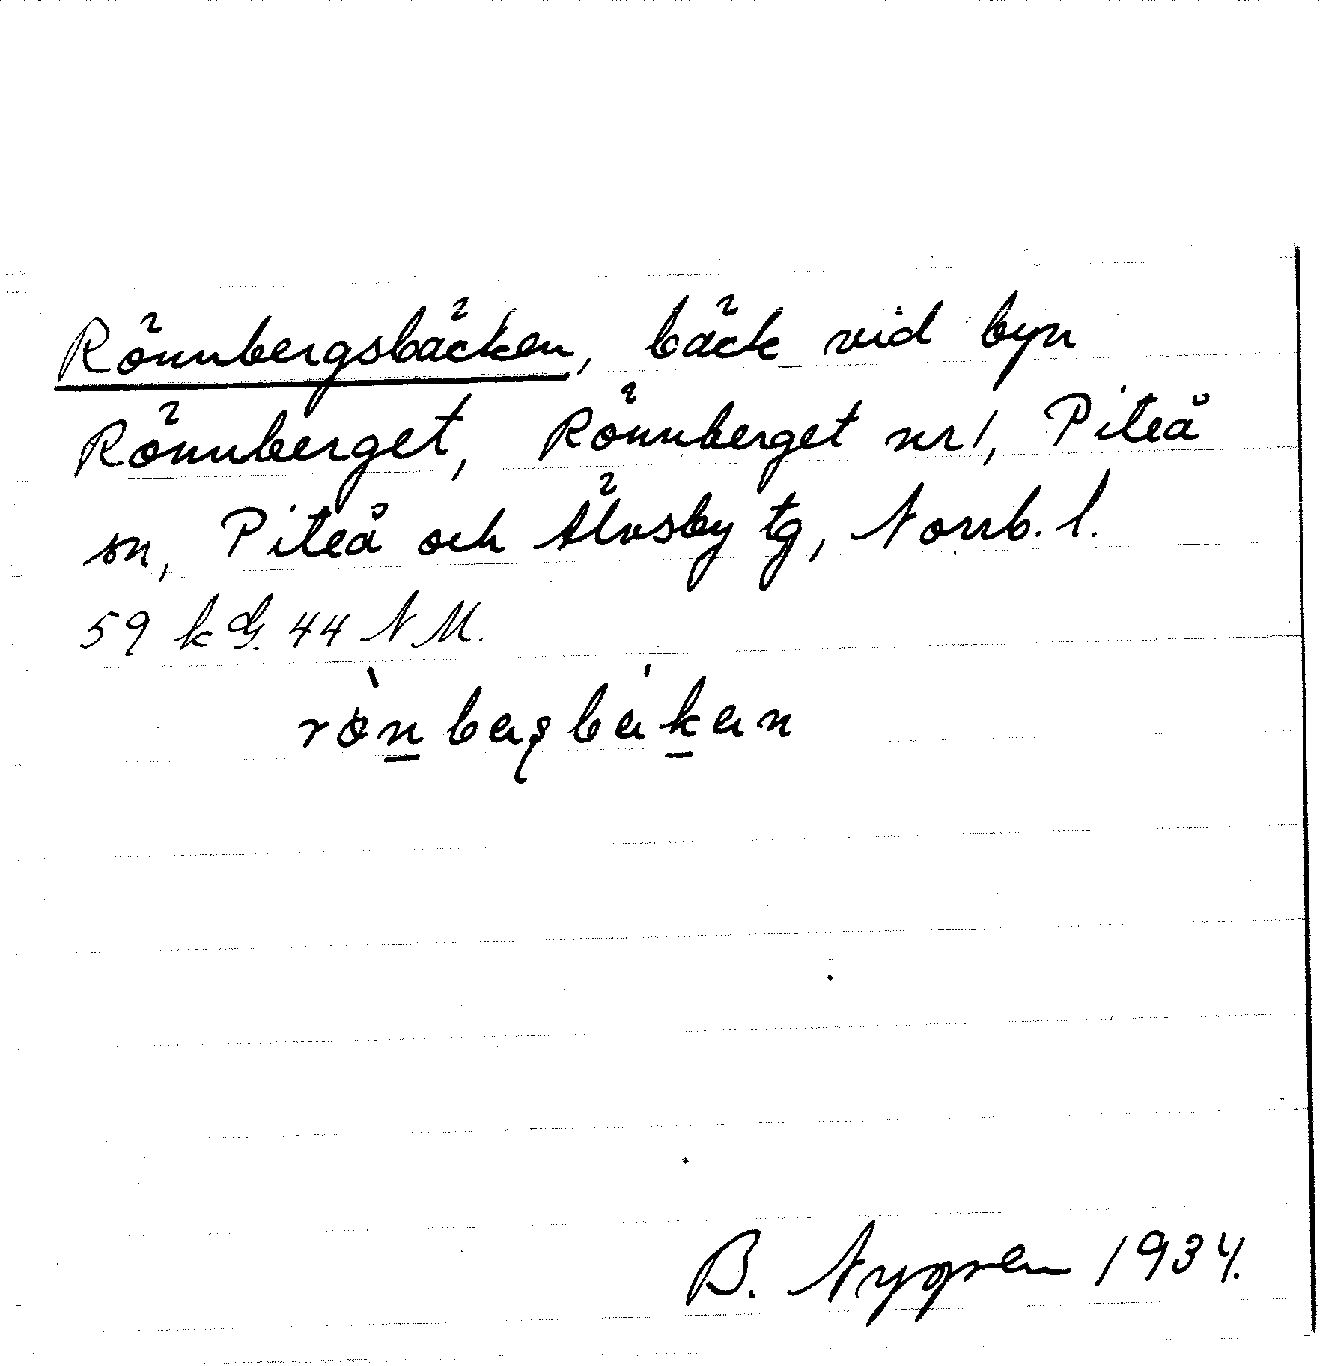 Rönnbergsbäcken, bäck vid byn
Rönnberget, Rönnberget nr 1, Piteå
sn, Piteå och Älvsby tg, Norrb. l.
59 k G. 44 N M.
B. Nygren 1934.